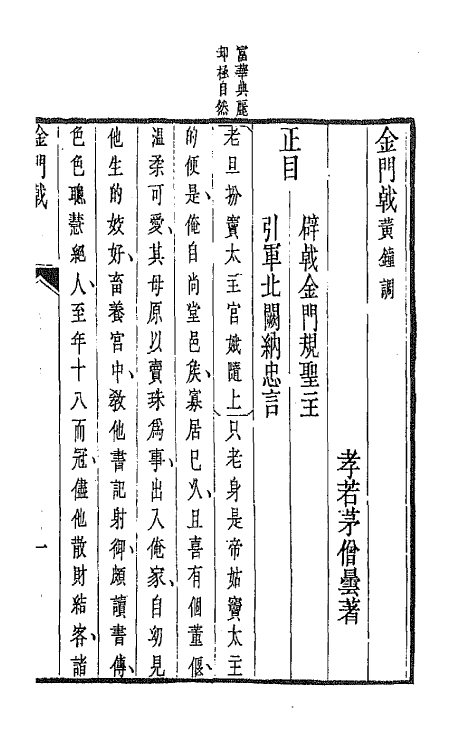 富華典麗
却極自然
金門戟黃鐘調
孝若茅僧曇著
正目
辟戟金門規聖主
引軍北闕納忠言
老旦扮竇太主官娥隨上只老身是帝姑竇太主
的便是、俺自尚堂邑矦、寡居已久、且喜有個董偃、
溫柔可愛、其母原以賣珠爲事、出入俺家、自幼見
他生的姣好、畜養宮中、敎他書記射御、頗讀書傳、
色色聰慧絕人、至年十八而冠、儘他散財結客、諧
金門戟
一